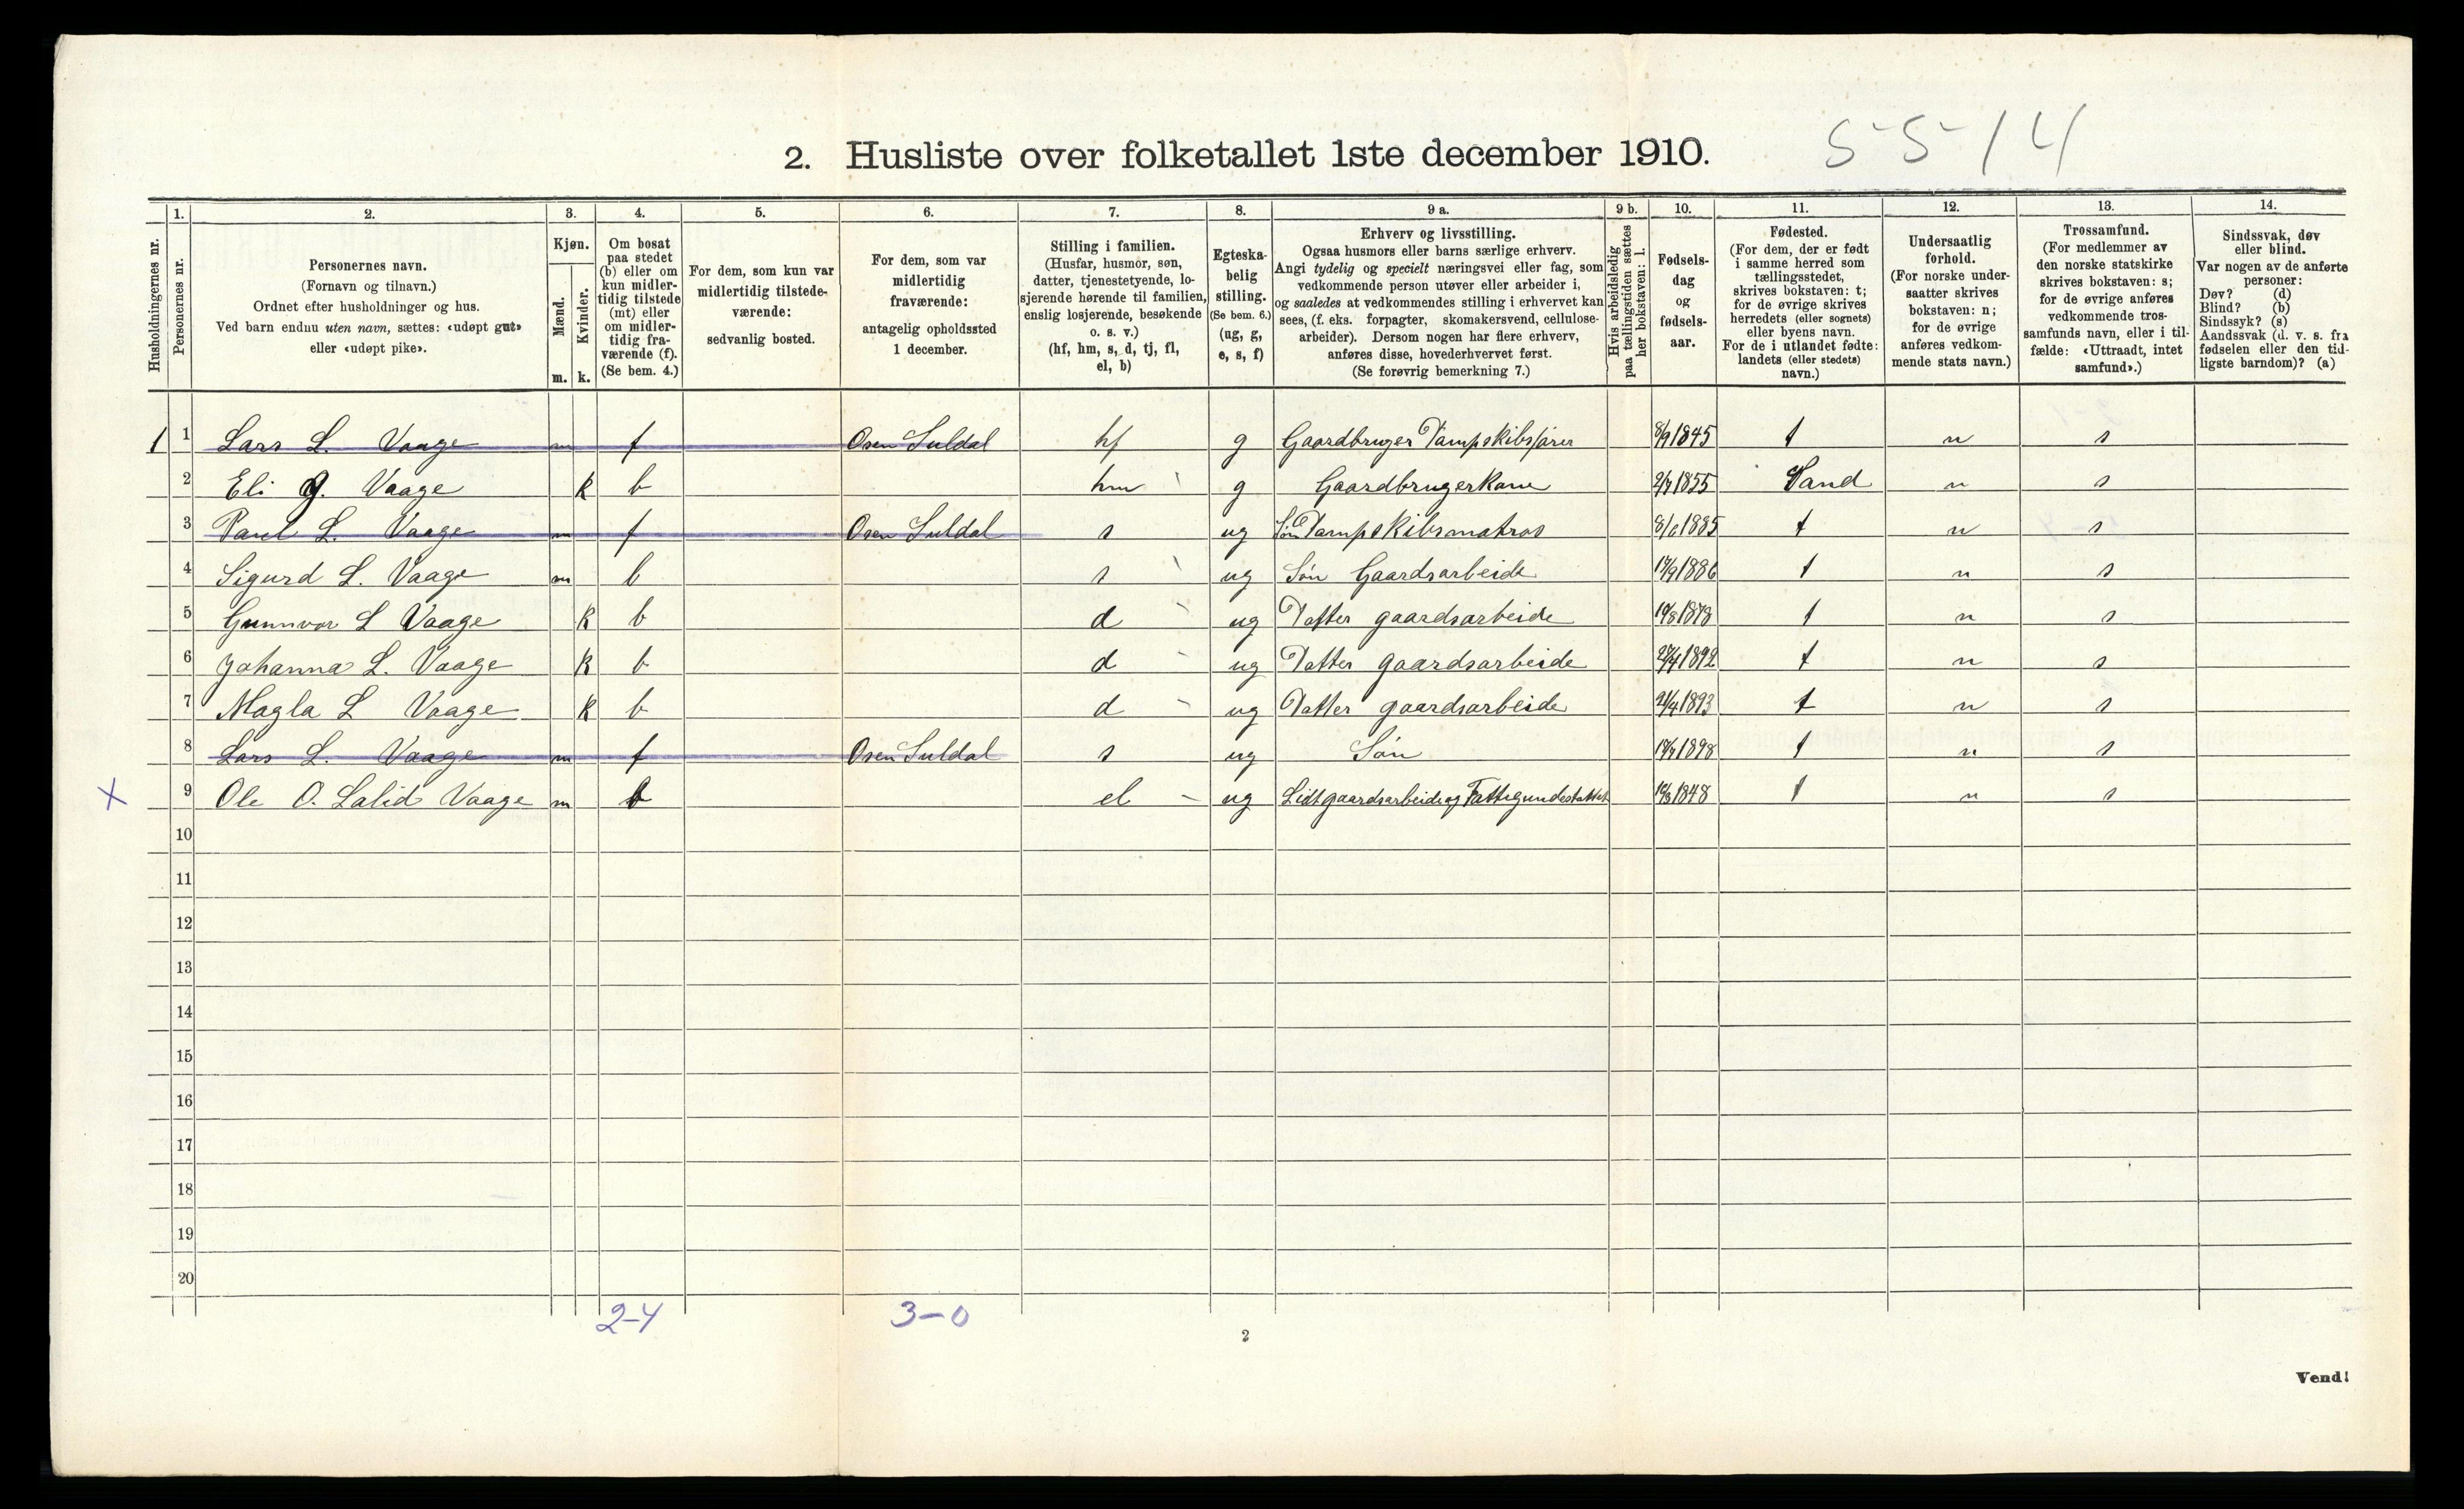 2. Husliste over folketallet 1ste december 1910.
5514
Husholdningernes nr.
1.
Personernes nr.
2.
Personernes navn.
(Fornavn og tilnavn.)
Ordnet efter husholdninger og hus.
Ved barn endnu uten navn, sættes: «udøpt gut»
eller «udøpt pike».
3.
Kjøn.
Mænd.
Kvinder.
m. k.
4.
Om bosat
paa stedet
(b) eller om
kun midler-
tidig tilstede
(mt) eller
om midler-
tidig fra-
værende (f).
(Se bem. 4.)
5.
For dem, som kun var
midlertidig tilstede-
værende:
sedvanlig bosted.
6.
For dem, som var
midlertidig
fraværende:
antagelig opholdssted
1 december.
7.
Stilling i familien.
(Husfar, husmor, søn,
datter, tjenestetyende, lo-
sjerende hørende til familien,
enslig losjerende, besøkende
o. s. v.)
(hf, hm, s, d, tj, fl,
el, b)
8.
Egteska-
belig
stilling.
(Se bem. 6.)
(ug, g,
e, s, f)
9 a.
Erhverv og livsstilling.
Ogsaa husmors eller barns særlige erhverv.
Angi tydelig og specielt næringsvei eller fag, som
vedkommende person utøver eller arbeider i,
og saaledes at vedkommendes stilling i erhvervet kan
sees, (f. eks. forpagter, skomakersvend, cellulose-
arbeider). Dersom nogen har flere erhverv,
anføres disse, hovederhvervet først.
(Se forøvrig bemerkning 7.)
9 b.
Hvis arbeidsledig
paa tællingstiden sættes
her bokstaven: l.
10.
Fødsels-
dag
og
fødsels-
aar.
11.
Fødested.
(For dem, der er født
i samme herred som
tællingsstedet,
skrives bokstaven: t;
for de øvrige skrives
herredets (eller sognets)
eller byens navn.
For de i utlandet fødte:
landets (eller stedets)
navn.)
12.
Undersaatlig
forhold.
(For norske under-
saatter skrives
bokstaven: n;
for de øvrige
anføres vedkom-
mende stats navn.)
13.
Trossamfund.
(For medlemmer av
den norske statskirke
skrives bokstaven: s;
for de øvrige anføres
vedkommende tros-
samfunds navn, eller i til-
fælde: «Uttraadt, intet
samfund».)
14.
Sindssvak, døv
eller blind.
Var nogen av de anførte
personer:
Døv? (d)
Blind? (b)
Sindssyk? (s)
Aandssvak (d. v. s. fra
fødselen eller den tid-
ligste barndom)? (a)
1 1 Lars L. Vaage m f Osen Suldal hf g Gaardbruger Dampskibsfører 8/9 1845 t n s
2 Eli G. Vaage k b hm g Gaardbrugerkone 1855 Sand n s
3 Paul L. Vaage m f Osen Suldal s ug Søn Dampskibsmatros 8/6 1885 t n s
4 Sigurd L. Vaage m b s ug Søn Gaardsarbeide 17/9 1886 t n s
5 Gunnvor L Vaage k b d ug Datter gaardsarbeide 1878 t n s
6 Johanna L. Vaage k b d ug Datter gaardsarbeide 1892 t n s
7 Magla L Vaage k b d ug Datter gaardsarbeide 21/4 1893 t n s
8 Lars L. Vaage m f Osen Suldal s ug Søn 1898 t n s
X 9 Ole O. Lalid Vaage m b el ug Lidt gaardsarbeide og Fattigunderstøttet 1848 t n s
10
11
12
13
14
15
16
17
18
19
20
2-4 3-0
2
Vend!